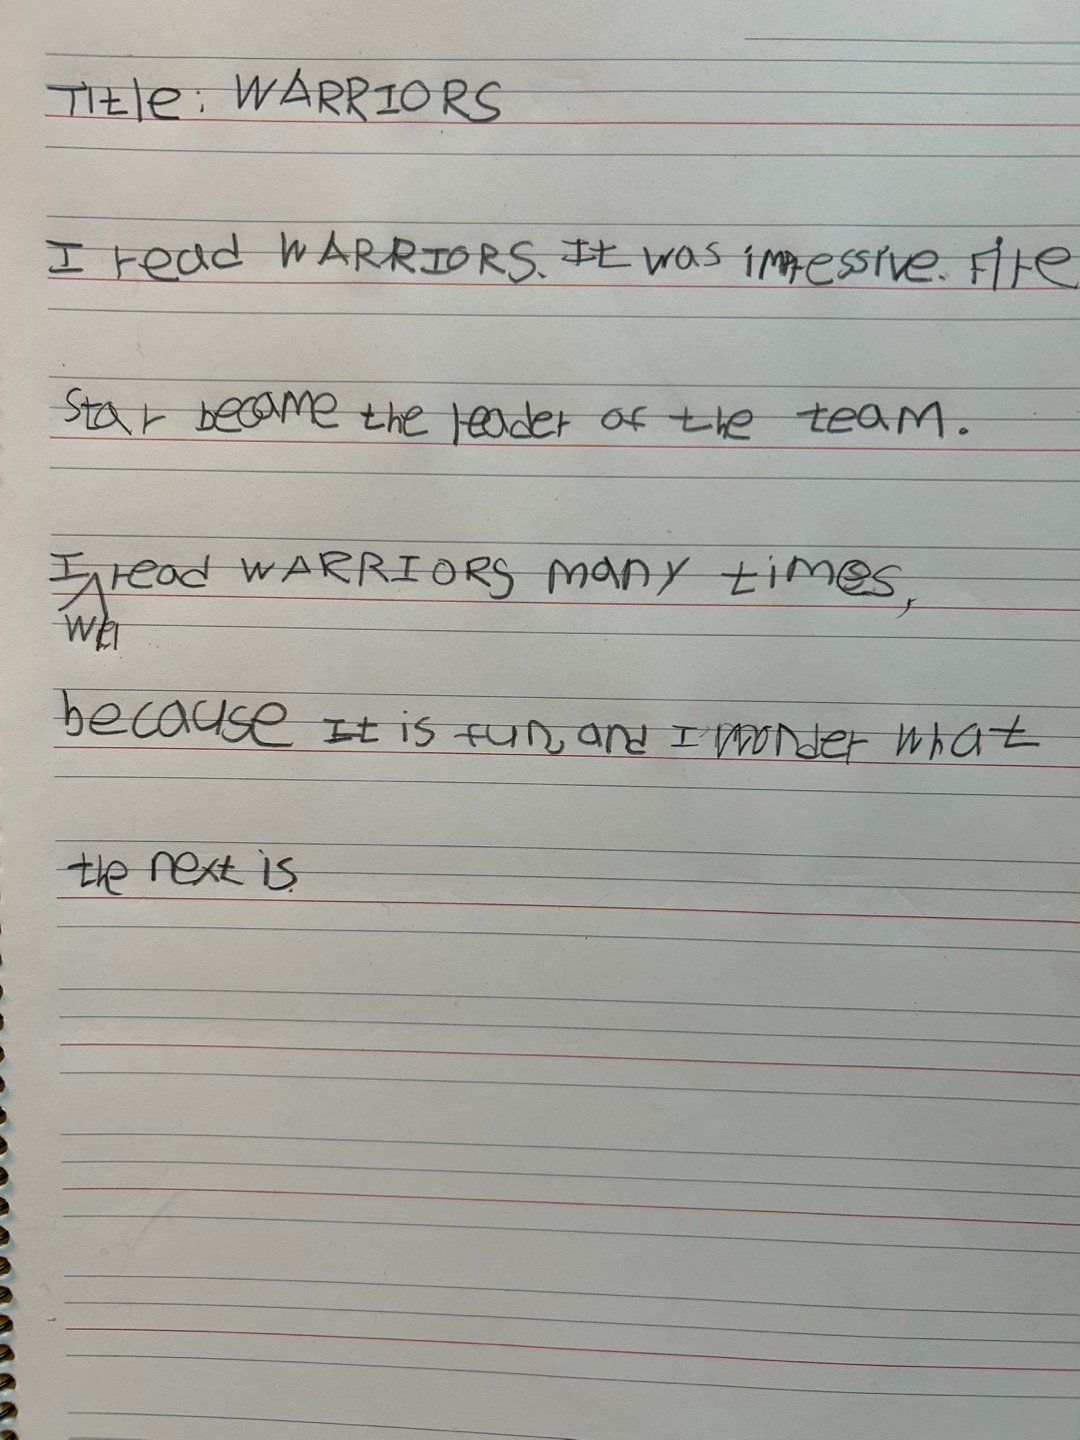 Title: WARRIORS
I read WARRIORS. It was impressive. Fire
star became the leader of the team.
I read WARRIORS many times,
because It is fun, and I wonder what
the next is.